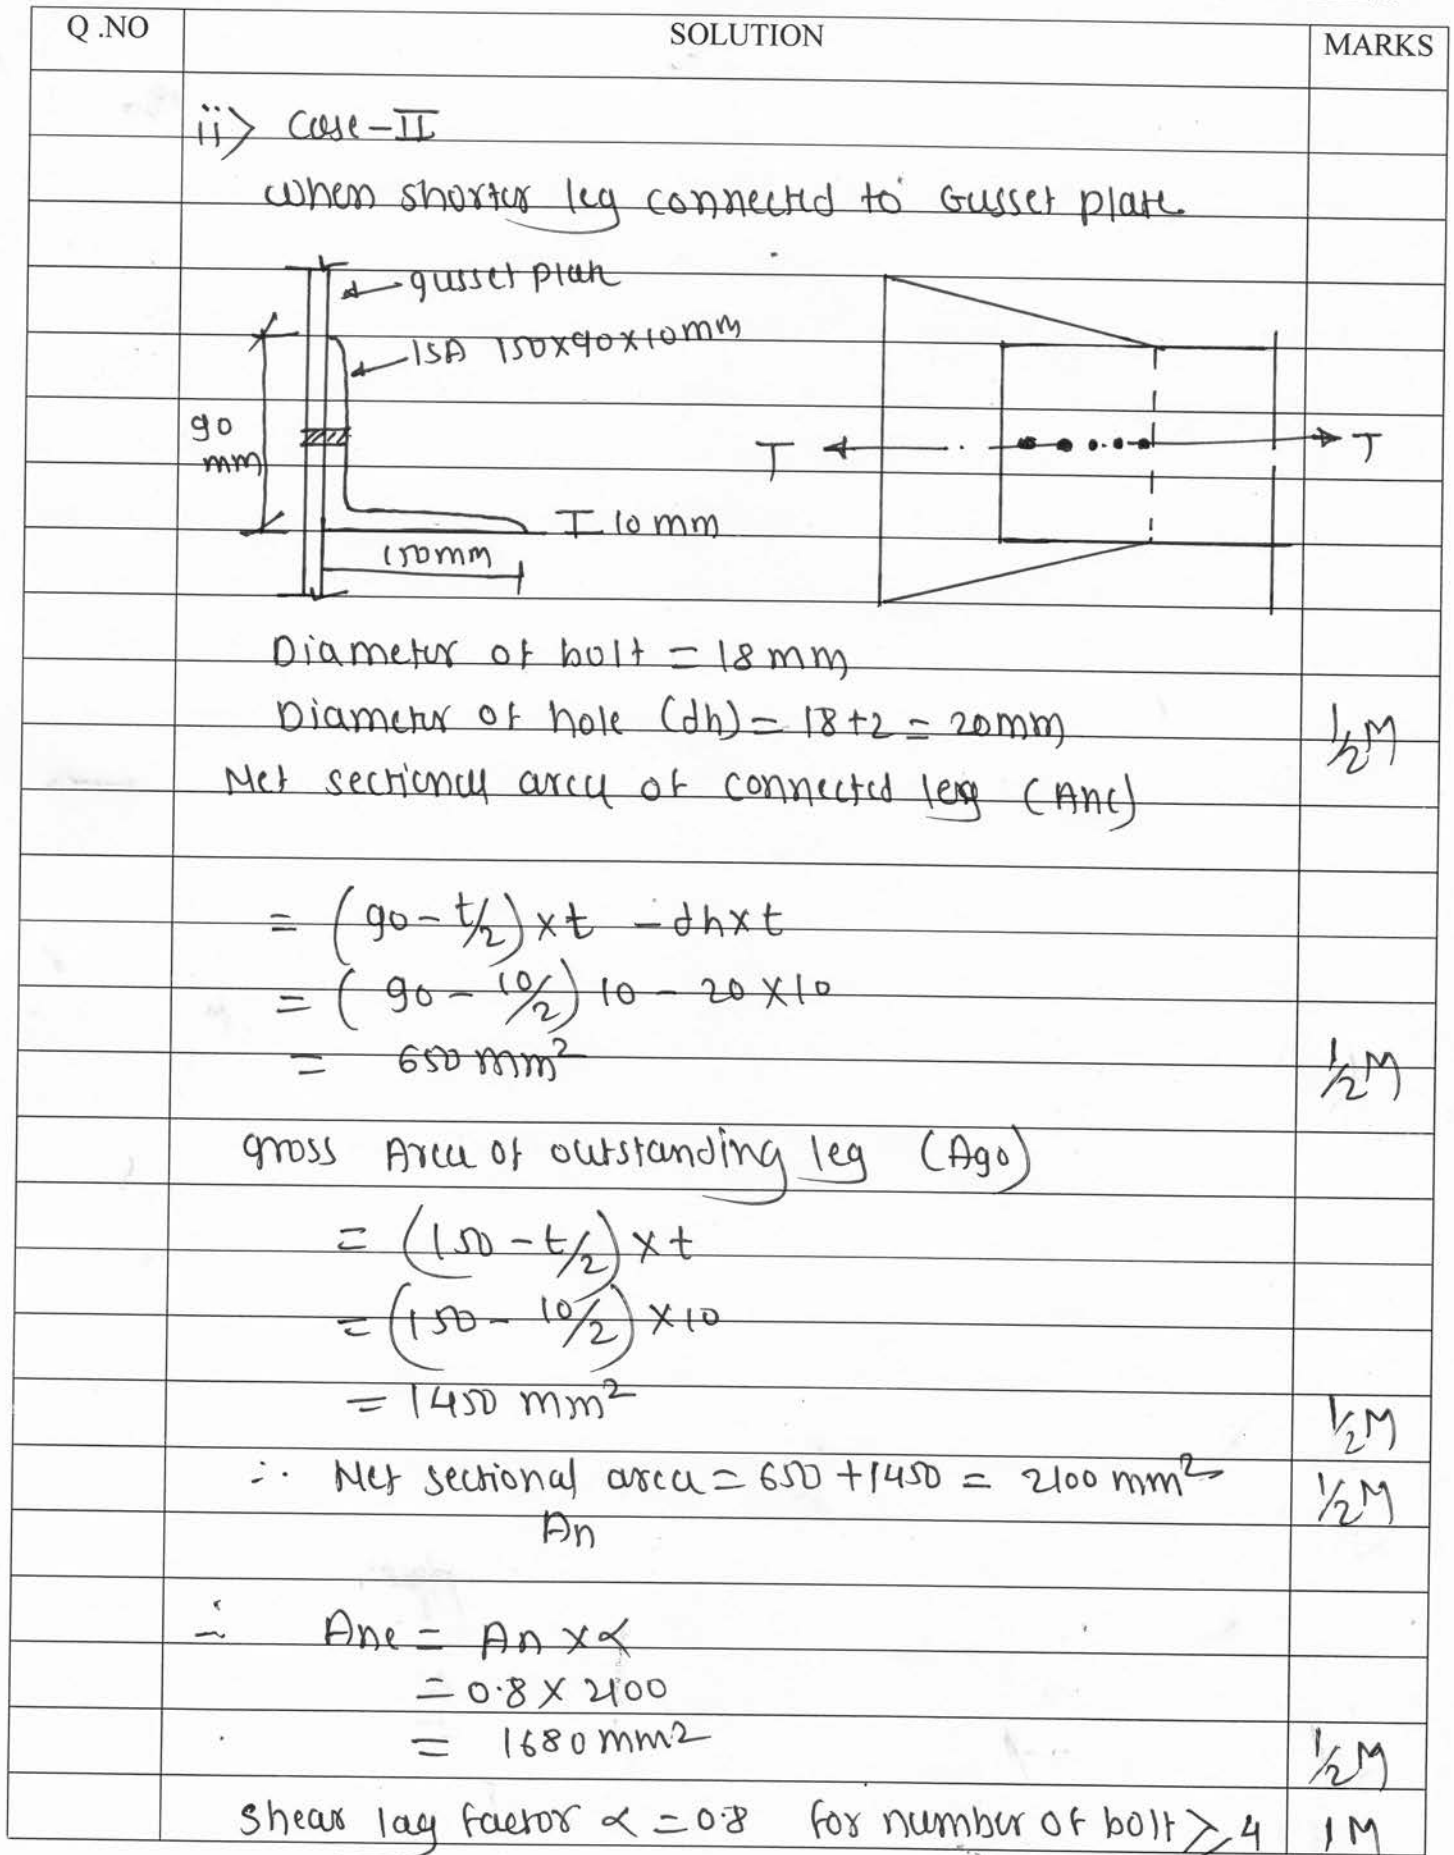 Q .NO SOLUTION MARKS
ii> Case-II
when shorter leg connected to Gusset plate
gusset plate
ISA 150x90x10mm
90
mm
T T
I 10 mm
150mm
Diameter of bolt = 18 mm
Diameter of hole (dh) = 18+2 = 20mm 1/2M
Net sectional area of connected leg (Anc)
= (90-t/2)xt - dhxt
= (90-10/2)10 - 20X10
= 650 mm² 1/2M
gross Area of outstanding leg (Ago)
= (150-t/2)xt
= (150-10/2)X10
= 1450 mm² 1/2M
∴ Net sectional area = 650+1450 = 2100 mm² 1/2M
An
∴ Ane = An x∝
= 0.8 X 2100
= 1680 mm2 1/2M
Shear lag factor ∝ = 0.8 for number of bolt ≥ 4 1M